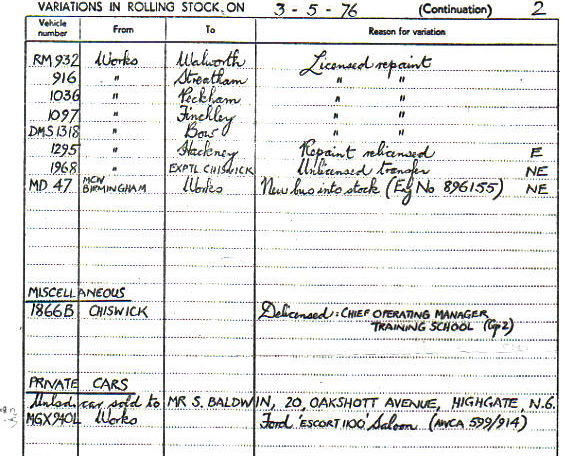 VARIATIONS IN ROLLING STOCK, ON 3 - 5 - 76 (Continuation) 2
Vehicle number From To Reason for variation
RM 932 Works Walworth Licensed repaint
916 " Streatham " "
1036 " Peckham " "
1097 " Finchley " "
DMS 1318 " Bow " "
1295 " Hackney Repaint relicensed E
1968 " EXPTL CHISWICK Unlicensed transfer NE
MD 47 MCW BIRMINGHAM Works New bus into stock (Eng No 896155) NE
MISCELLANEOUS
1866B CHISWICK Delicensed: CHIEF OPERATING MANAGER
TRAINING SCHOOL (Gp 2)
PRIVATE CARS
Unlsd. car sold to MR S. BALDWIN, 20, OAKSHOTT AVENUE, HIGHGATE, N.6.
MGX 940L Works Ford 'ESCORT 1100' Saloon (AWCA 599/914)